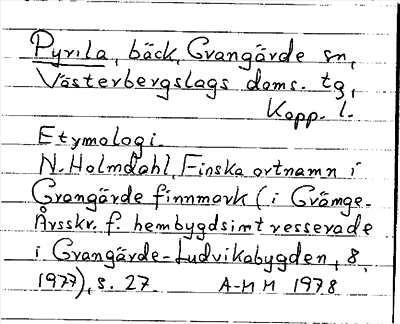 Pyrila, bäck, Grangärde sn,
Västerbergslags doms. tg,
Kopp. l.
Etymologi.
N. Holmdahl, Finska ortnamn i
Grangärde finnmark (i Grämge.
Årsskr. f. hembygdsintresserade
i Grangärde-Ludvikabygden, 8,
1977), s. 27 A-M M 1978